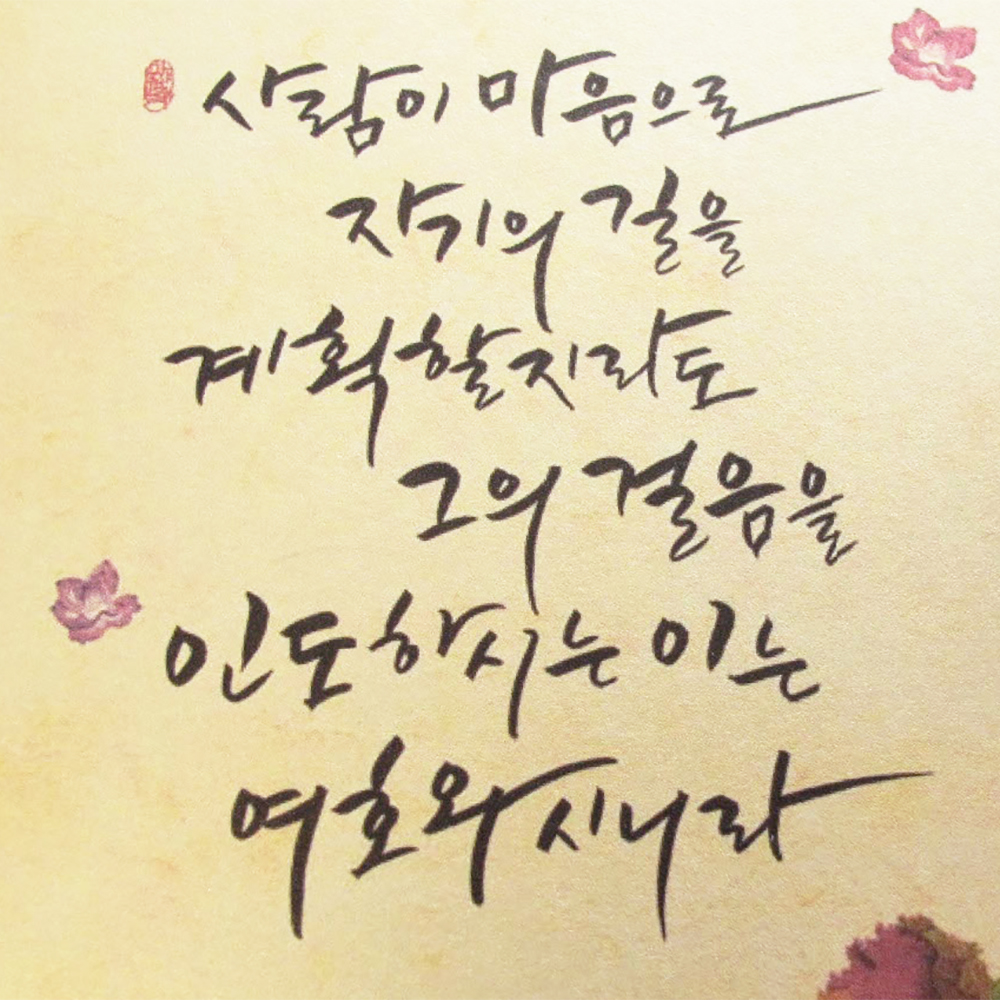 사람이 마음으로
자기의 길을
계획할지라도
그의 걸음을
인도하시는 이는
여호와시니라